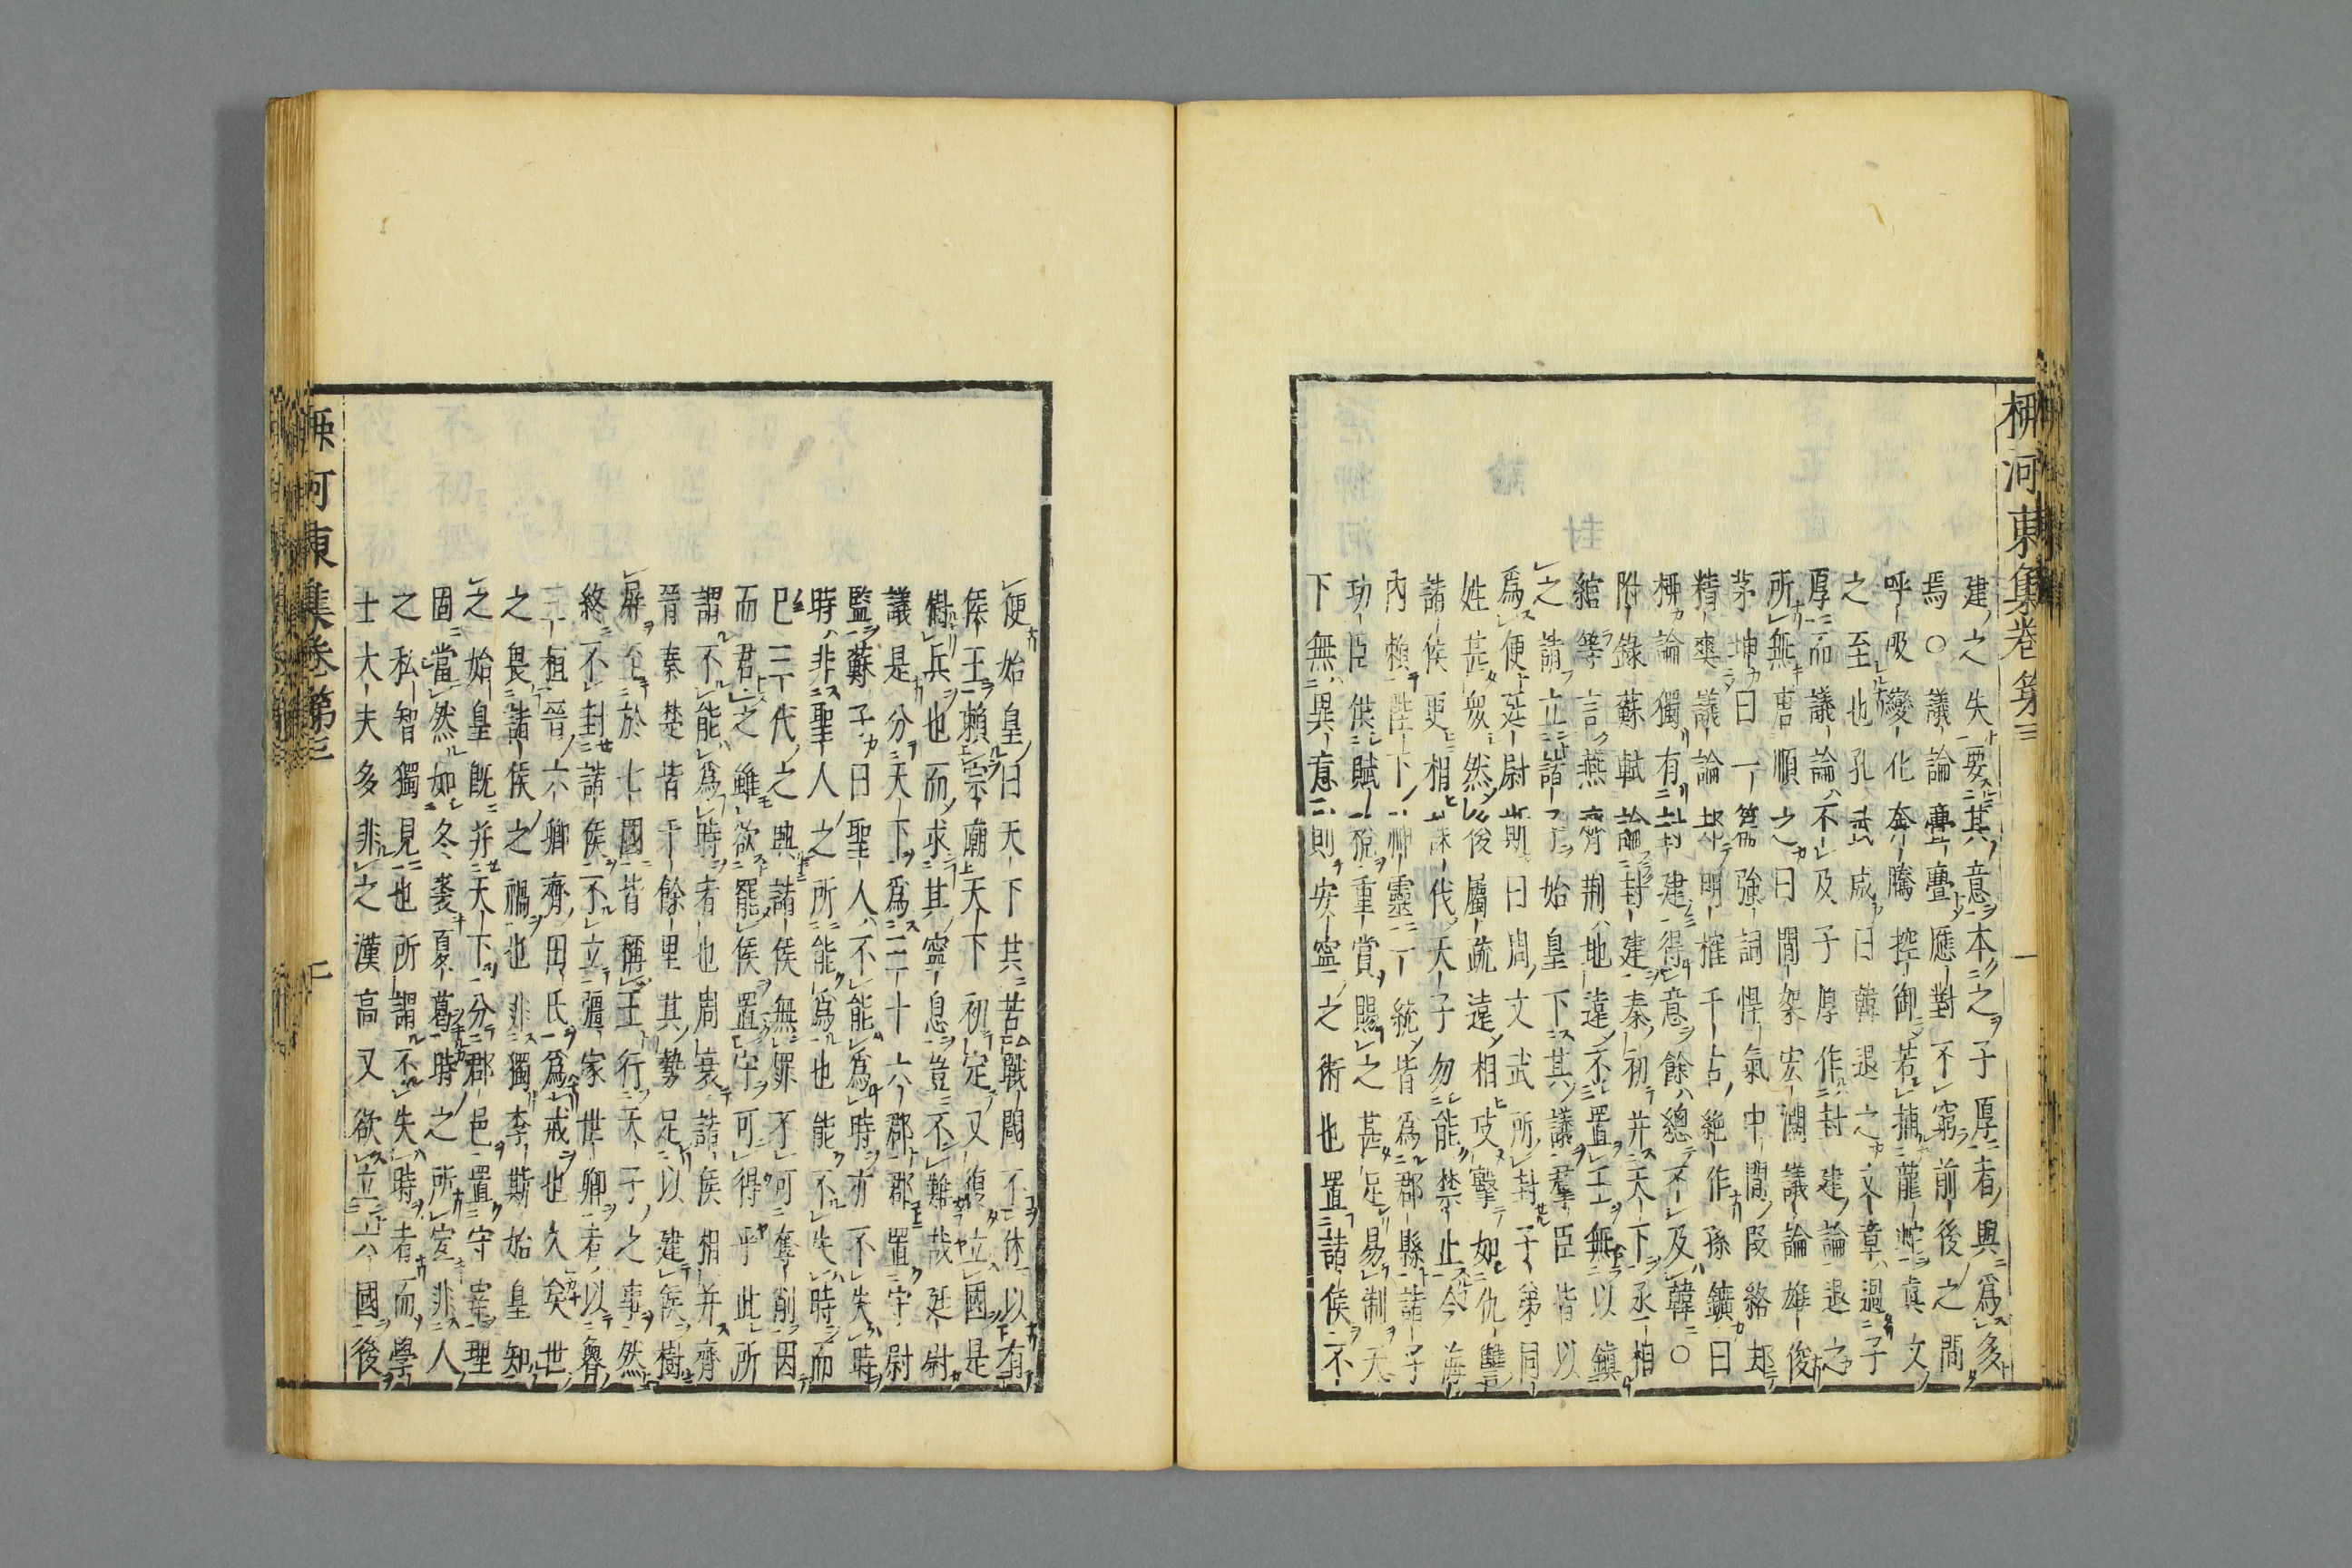 柳河東集卷第三
一
建之失要其意本之子厚者與爲多
焉○議論亹亹應對不窮前後之間
呼吸變化奔騰控御若捕龍蛇眞文
之至也孔武成曰韓退之文章過子
厚而議論不及子厚作封建論退之
所無唐順之曰間架宏濶議論雄俊
茅坤曰一篇強詞悍氣中間段絡却
精爽議論却明確千古絶作孫鑛曰
柳論獨有封建得意餘總不及韓○
附錄蘇軾論封建秦初并天下丞相
綰等言燕齊荆地遠不置王無以鎮
之請立諸子始皇下其議羣臣皆以
爲便廷尉斯曰周文武所封子弟同
姓甚衆然後屬疏遠相攻擊如仇讐
諸侯更相誅伐天子勿能禁止今海
內賴陛下神靈一統皆爲郡縣諸子
功臣供賦稅重賞賜之甚足易制天
下無異意則安寧之術也置諸侯不
便始皇曰天下共苦戰鬪不休以有
侯王賴宗廟天下初定又復立國是
樹兵也而求其寧息豈不難哉廷尉
議是分天下爲三十六郡郡置守尉
監蘇子曰聖人不能爲時亦不失時
時非聖人之所能爲也能不失時而
巳三代之興諸侯無罪不可奪削因
而君之雖欲罷侯置守可得乎此所
謂不能爲時者也周衰諸侯相并齊
晉秦楚皆千餘里其勢足以建侯樹
屏至於七國皆稱王行天子之事然
終不封諸侯不立彊家世卿者以魯
三桓晉六卿齊田氏爲戒也久矣世
之畏諸侯之禍也非獨李斯始皇知
之始皇既并天下分郡邑置守宰理
固當然如冬裘夏葛時之所宜非人
之私智獨見也所謂不失時者而學
士大夫多非之漢高又欲立六國後
柳河東集卷第三